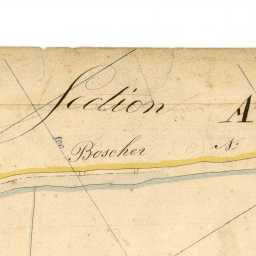 Section A
Boscher N: